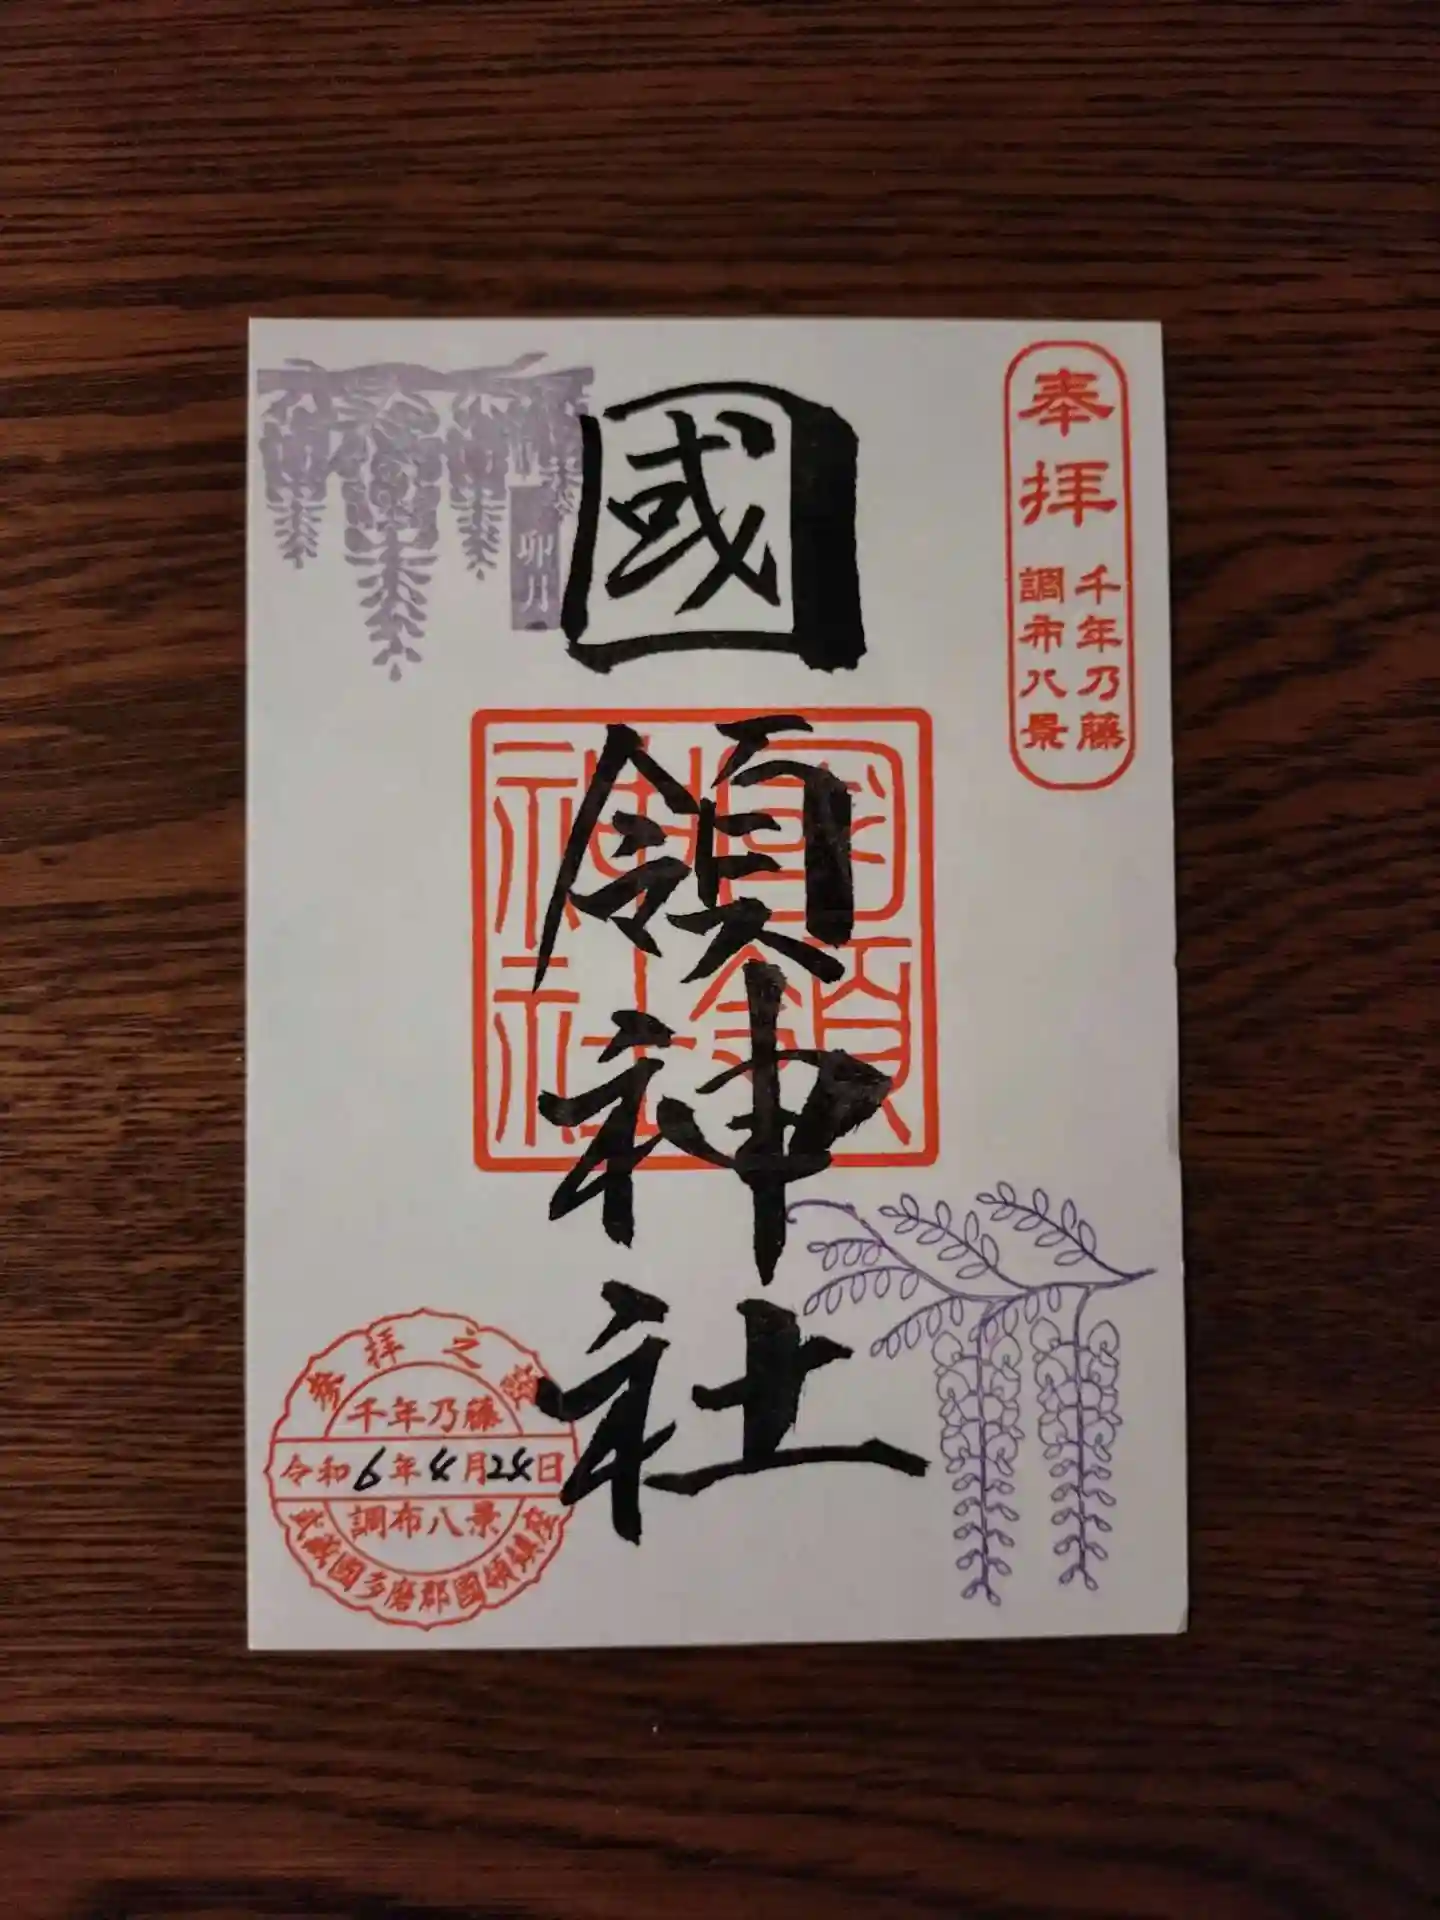 奉拝
千年乃藤
調布八景
國領神社
國領
神社
卯月
参拝之證
千年乃藤
令和6年4月24日
調布八景
武蔵國多磨郡國領鎮座